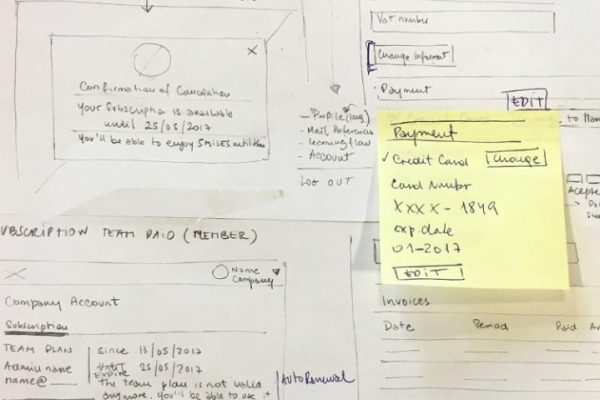 Confirmation of Cancelation
Your Subscription is available
until 25/05/2017
You'll be able to enjoy SMILES until then
Profile (lang)
Mail Preferences
Learning flow
Account
LOG OUT
Vat number
Change Informat
Payment
EDIT
Payment
✓ Credit Card Change
Card Numbr
XXXX - 1849
exp. date
01-2017
EDIT
to Plan
Invoices
Date Period Paid
UBSCRIPTION TEAM PAID (MEMBER)
Name
Company
Company Account
Subscription
TEAM PLAN since 13/05/2017
Admin name Expire 25/05/2017
name@ The team plan is not valid
anymore. You'll be able to use it
AutoRenewal